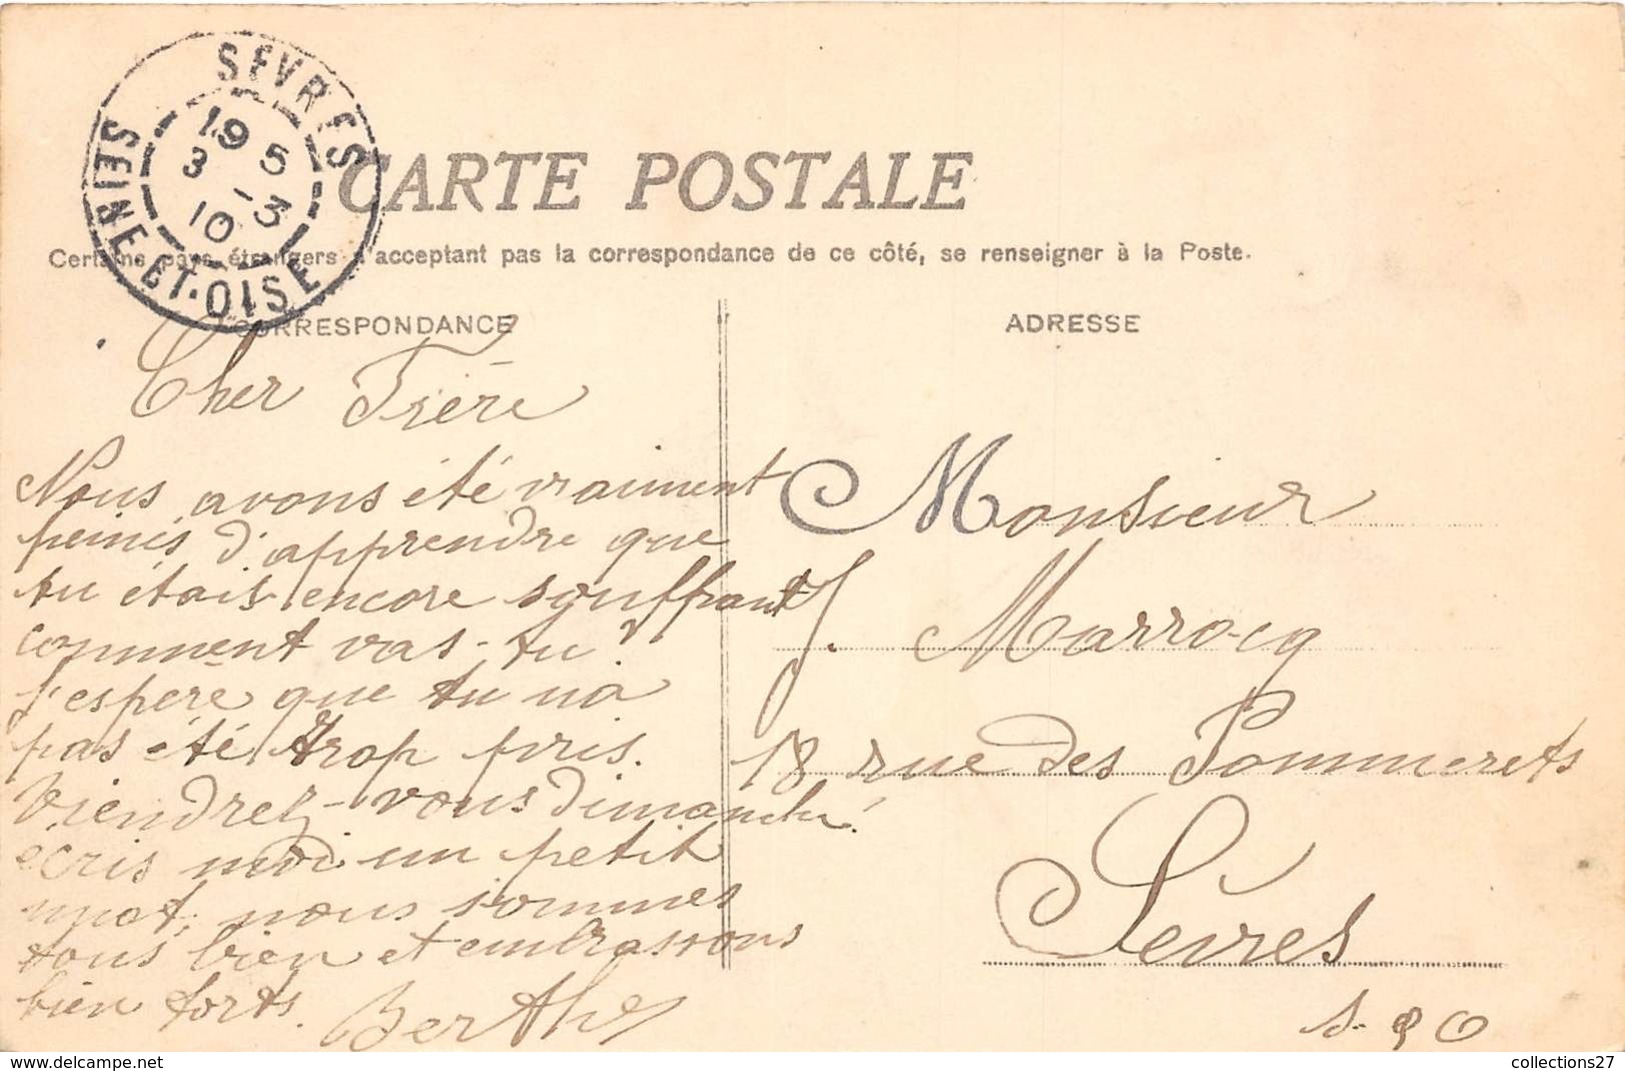 SEVRES
19 5
3 -3
10
SEINE-ET-OISE
CARTE POSTALE
Certains pays étrangers n'acceptant pas la correspondance de ce côté, se renseigner à la Poste.
CORRESPONDANCE
ADRESSE
Cher Frère
Nous avons été vraiment
peinés d'apprendre que
tu étais encore souffrant
comment vas-tu?
J'espère que tu na
pas été trop pris.
Viendrez-vous dimanche
écris moi un petit
mot, nous sommes
tous bien et embrassons
bien forts.
Berthe
Monsieur
J. Marrocq
18 rue des Pommerets
Sèvres
S. & O
collections27